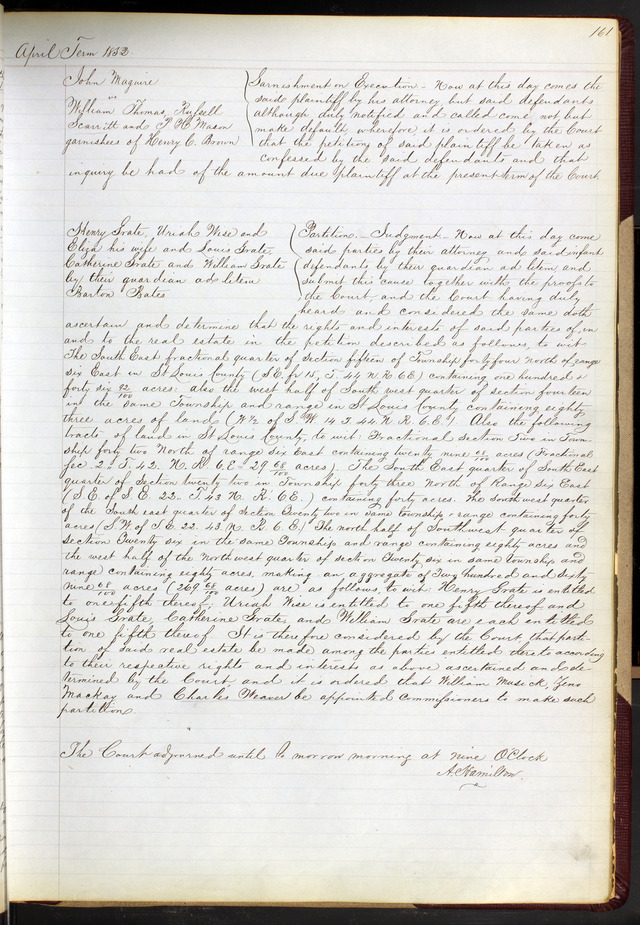 161
April Term 1852.
John Maguire
vs
William Thomas, Russell
Scarritt and P. H. Mason
garnishees of Henry C. Brown
Garnishment on Execution - Now at this day comes the
said plaintiff by his attorney but said defendants
although duly notified and called come not, but
make default, wherefore it is ordered by the Court
that the petition of said plaintiff be taken as
confessed by the said defendants and that
inquiry be had of the amount due plaintiff at the present term of the Court.
Henry Grate, Uriah Wise and
Eliza his wife and Louis Grate,
Catherine Grate and William Grate
by their guardian ad litem
Barton Bates
Partition - Judgment - Now at this day come
said parties by their attorney and said infant
defendants by their guardian ad litem, and
submit this cause together with the proofs to
the Court, and the Court having duly
heard and considered the same doth
ascertain and determine that the rights and interests of said parties of, in
and to the real estate in the petition described as follows, to wit
The South East fractional quarter of section fifteen of Township forty four North of range
six East in St Louis County (S.E. fr 15, T. 44 N. R. 6. E) containing one hundred
forty six 92/100 acres: also the west half of South west quarter of section fourteen
in the same Township and range in St Louis County containing eighty
three acres of land (W ½ of S W. 14 T. 44. N. R. 6. E.) Also the following
tracts of land in St Louis County, to wit: Fractional Section Two in Town-
ship forty two North of range six East containing twenty nine 68/100 acres (Fractional
Sec. 2. T. 42. N. R. 6. E. 29 68/100 acres). The South East quarter of South East
quarter of Section twenty two in Township forty three North of Range six East
(S.E. of S.E. 22. T. 43 N. R. 6 E.) containing forty acres. The South west quarter
of the South east quarter of Section Twenty two in same township & range containing forty
acres (S.W. of S.E. 22. 43. N. R. 6. E.) The north half of Southwest quarter of
Section Twenty six in the same Township and range containing eighty acres and
the west half of the Northwest quarter of section Twenty six in same township and
range containing eighty acres, making an aggregate of Two hundred and Sixty
nine 68/100 acres (269 68/100 acres) are as follows, to wit: Henry Grate is entitled
to one fifth thereof, Uriah Wise is entitled to one fifth thereof and
Louis Grate, Catherine Grate, and William Grate are each entitled
to one fifth thereof. It is therefore considered by the Court, that parti-
tion of said real estate be made among the parties entitled thereto according
to their respective rights and interests as above ascertained and de-
termined by the Court, and it is ordered that William Musick, Zeno
Mackay and Charles Weaver be appointed Commissioners to make such
partition.
The Court adjourned until to morrow morning at nine O'Clock
A. Hamilton.